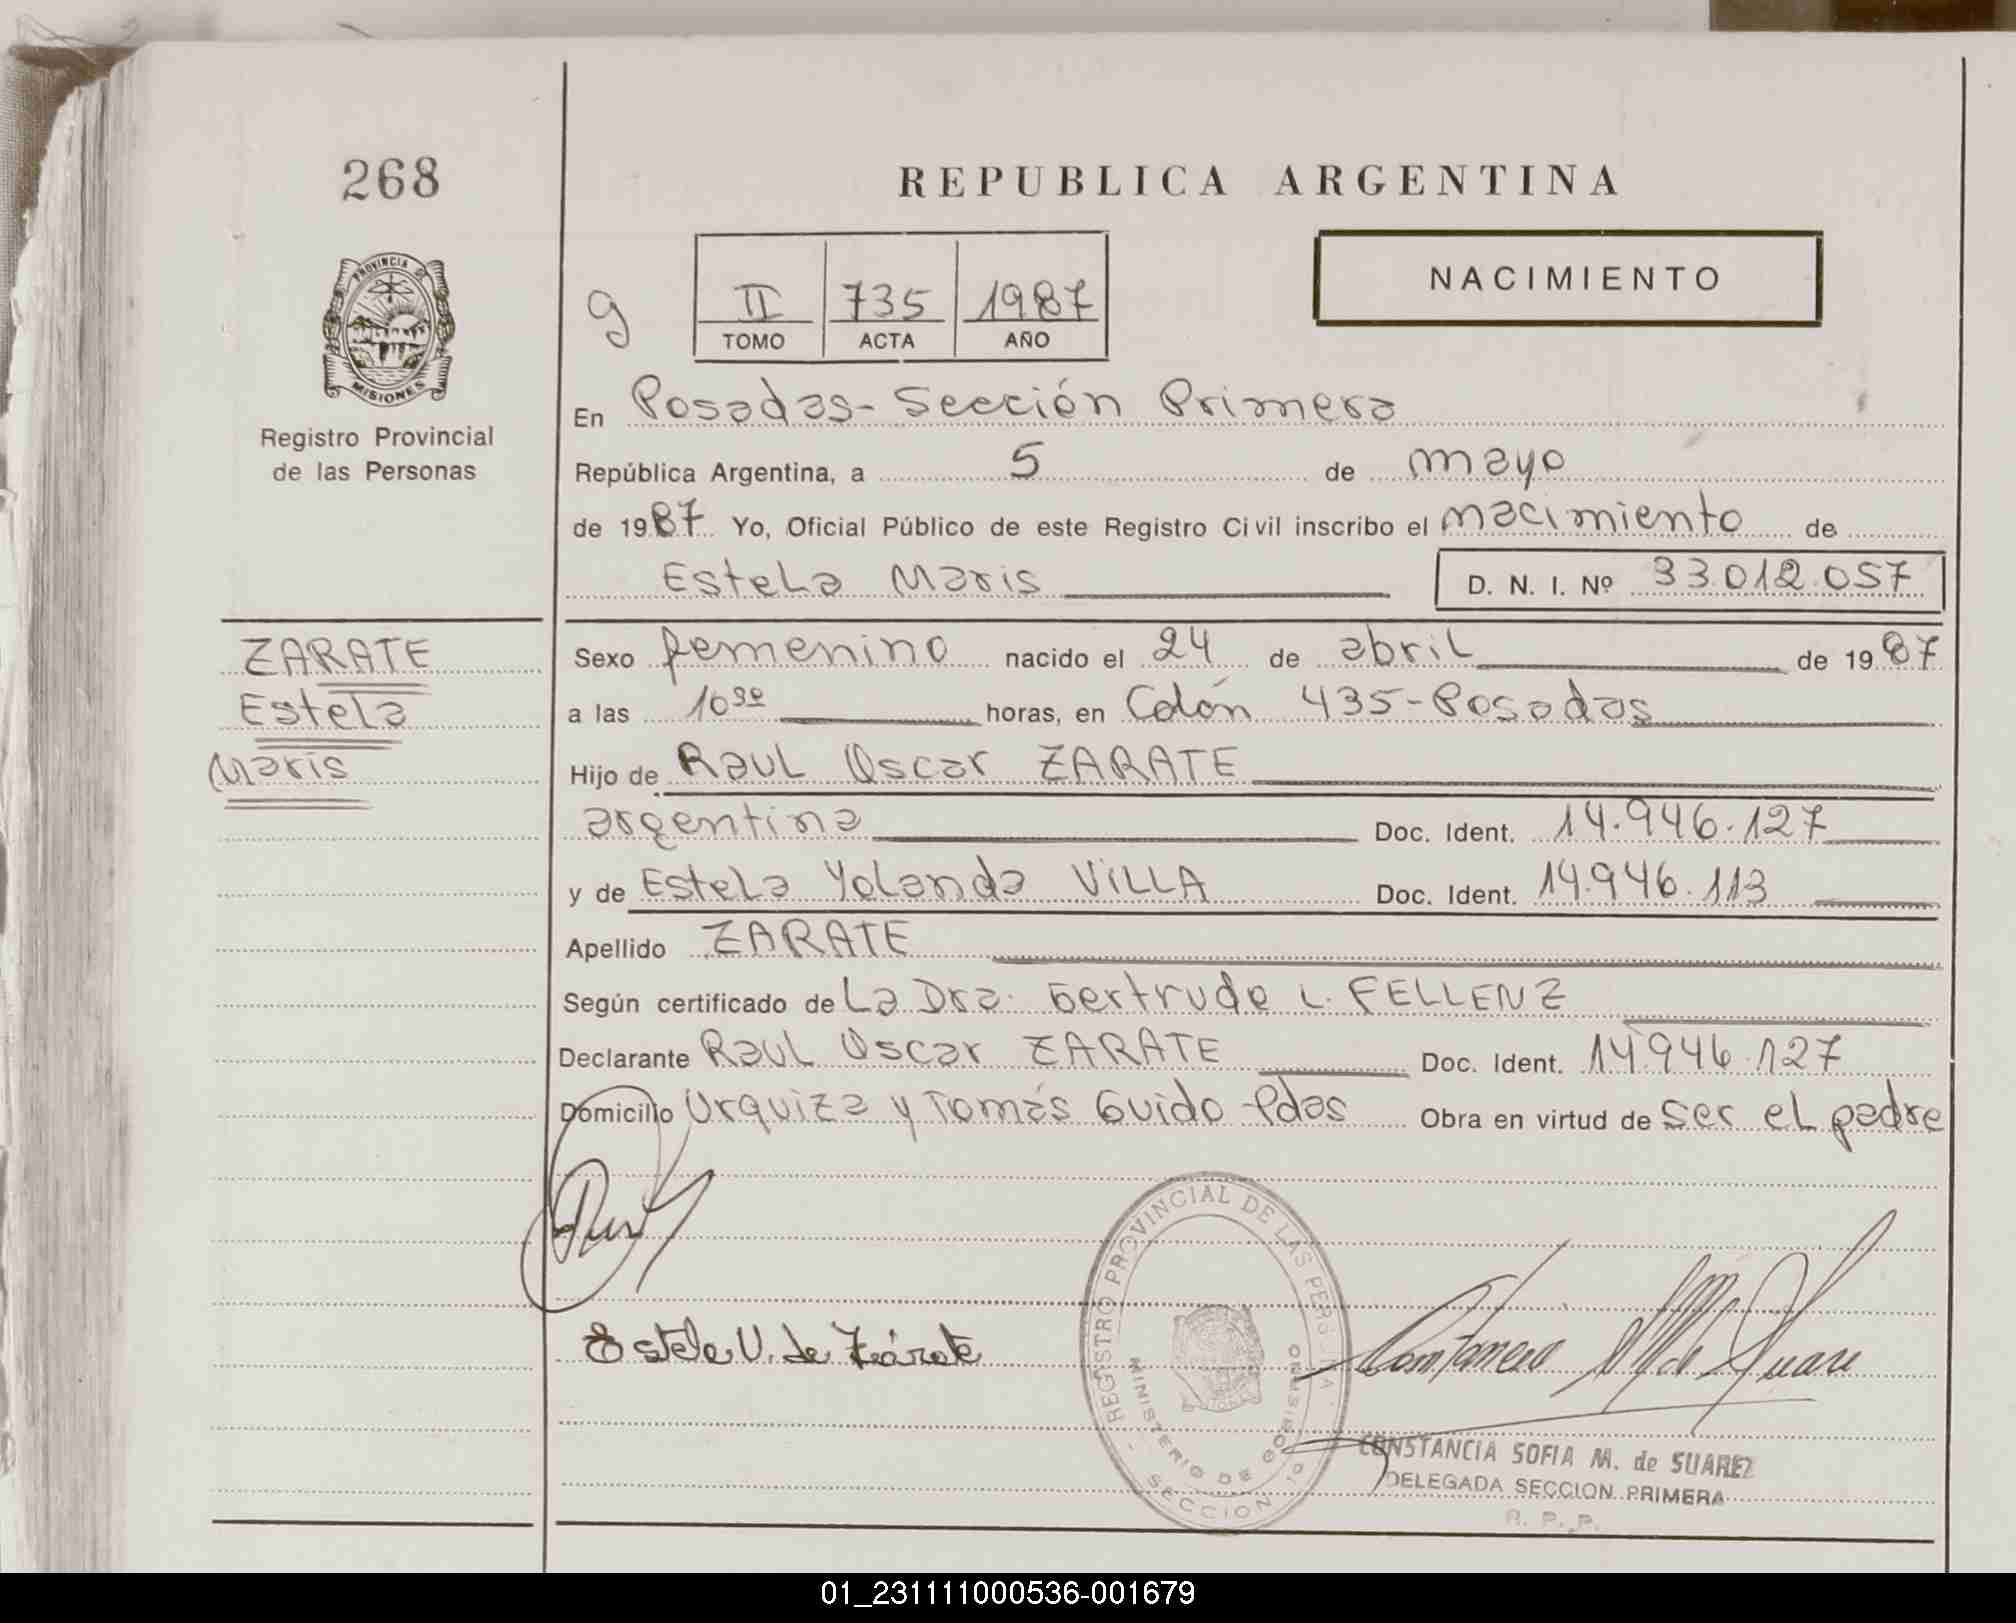 268
REPUBLICA ARGENTINA
PROVINCIA DE
MISIONES
Registro Provincial
de las Personas
g
II 735 1987
TOMO ACTA AÑO
NACIMIENTO
En Posadas - Sección Primera
República Argentina, a 5 de mayo
de 1987 Yo, Oficial Público de este Registro Civil inscribo el nacimiento de
Estela Maris D. N. I. Nº 33.012.057
ZARATE
Estela
Maris
Sexo femenino nacido el 24 de abril de 1987
a las 10 30 horas, en Colón 435 - Posadas
Hijo de Raul Oscar ZARATE
argentina Doc. Ident. 14.946.127
y de Estela Yolanda VILLA Doc. Ident. 14.946.113
Apellido ZARATE
Según certificado de La Dra. Gertrude L. FELLENZ
Declarante Raul Oscar ZARATE Doc. Ident. 14.946.127
Domicilio Urquiza y Tomás Guido - Pdas Obra en virtud de ser el padre
Estela V. de Zárate
REGISTRO PROVINCIAL DE LAS PERSONAS
MINISTERIO DE GOBIERNO
SECCION 1a
CONSTANCIA SOFIA M. de SUAREZ
DELEGADA SECCION PRIMERA
R. P. P.
01_231111000536-001679